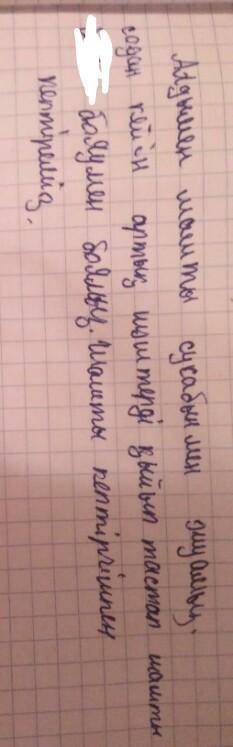 Алдымен шашты сусабынмен жуамыз,
содан кейін артық шаштерді қыйып тастап шашты
бояумен бояймыз. Шашты кептіргішпен
кептіреміз.